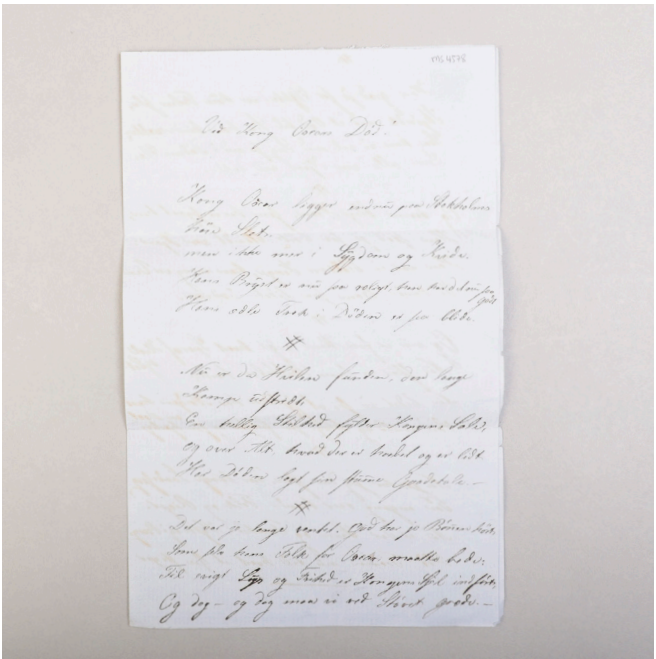 Ms 4578
Ved Kong Oscars Död.
Kong Oscar ligger endnu paa Stokholms
Slot
men ikke mer i Sygdom og Kvide.
Hans Bryst er nu saa roligt, han
Hans ædle Træk i Döden er saa blide.
#
Nu er da Hvilen funden, den lange
Kamp udstridt.
En hellig Stilhed fylder Kongens Sale,
og over Alt, hvad der er og er lidt
Har Döden lagt sin
#
Det var jo længe ventet. Gud har jo Bönnen hört,
Som hans Folk for Oscar maatte bede.
Til evigt Lys og Frihed er Kongens Sjel indfört,
Og dog – og dog maa vi ved Stövet græde. –